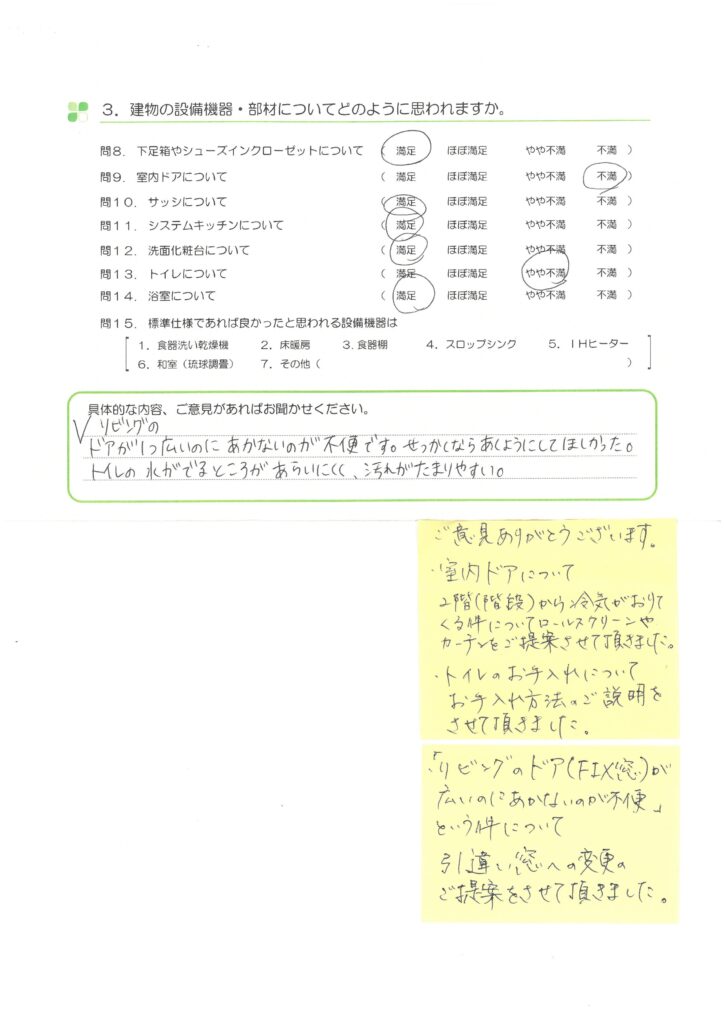 3．建物の設備機器・部材についてどのように思われますか。
問8．下足箱やシューズインクローゼットについて （ 満足 ほぼ満足 やや不満 不満 ）
問9．室内ドアについて （ 満足 ほぼ満足 やや不満 不満 ）
問10．サッシについて （ 満足 ほぼ満足 やや不満 不満 ）
問11．システムキッチンについて （ 満足 ほぼ満足 やや不満 不満 ）
問12．洗面化粧台について （ 満足 ほぼ満足 やや不満 不満 ）
問13．トイレについて （ 満足 ほぼ満足 やや不満 不満 ）
問14．浴室について （ 満足 ほぼ満足 やや不満 不満 ）
問15．標準仕様であれば良かったと思われる設備機器は
1．食器洗い乾燥機 2．床暖房 3．食器棚 4．スロップシンク 5．IHヒーター
6．和室（琉球調畳） 7．その他（ ）
具体的な内容、ご意見があればお聞かせください。
リビングの
ドアが1つ広いのに あかないのが不便です。せっかくならあくようにしてほしかった。
トイレの 水がでるところが あらいにくく、汚れがたまりやすい。
ご意見ありがとうございます。
・室内ドアについて
2階（階段）から冷気がおりて
くる件についてロールスクリーンや
カーテンをご提案させて頂きました。
・トイレのお手入れについて
お手入れ方法のご説明を
させて頂きました。
・「リビングのドア（FIX窓）が
広いのにあかないのが不便」
という件について
引違い窓への変更の
ご提案をさせて頂きました。